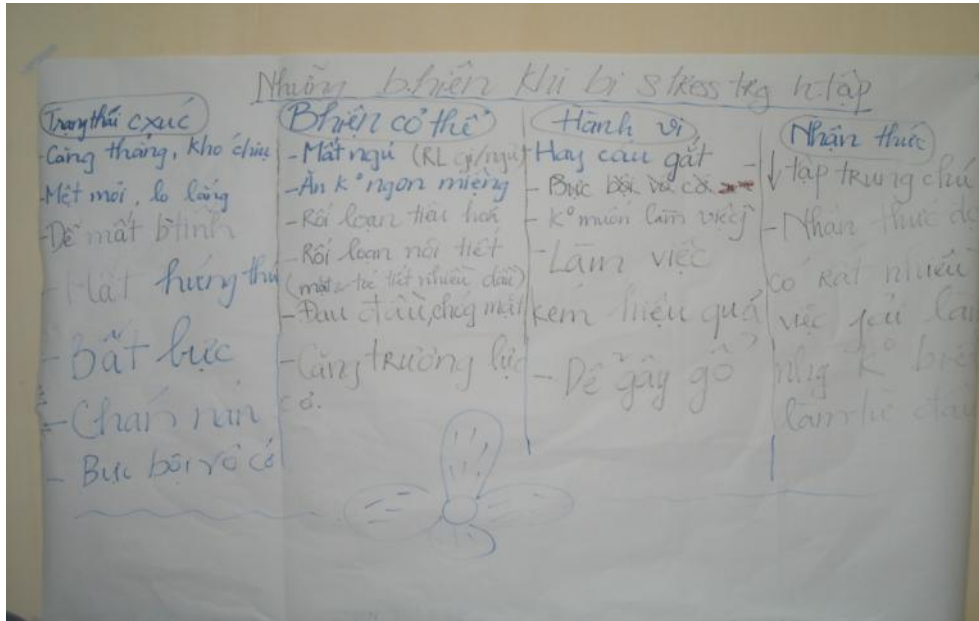 Những bhiện khi bị stress trg h.tập
Trạng thái cxúc
- Căng thẳng, khó chịu
- Mệt mỏi, lo lắng
- Dễ mất btĩnh
- Mất hứng thú
- Bất lực
- Chán nản
- Bực bội vô cớ
Bhiện cơ thể
- Mất ngủ (RL gi/ngủ)
- Ăn k° ngon miệng
- Rối loạn tiêu hoá
- Rối loạn nội tiết
(mặt & tóc tiết nhiều dầu)
- Đau đầu, chóg mặt
- Căng trương lực
cơ.
Hành vi
- Hay cáu gắt
- Bực bội vô cớ
- K° muốn làm việc
- Làm việc
kém hiệu quả
- Dễ gây gổ
Nhận thức
- ↓ tập trung chú
- Nhận thức
có rất nhiều
việc fải làm
nhg k° biết
làm từ đâu